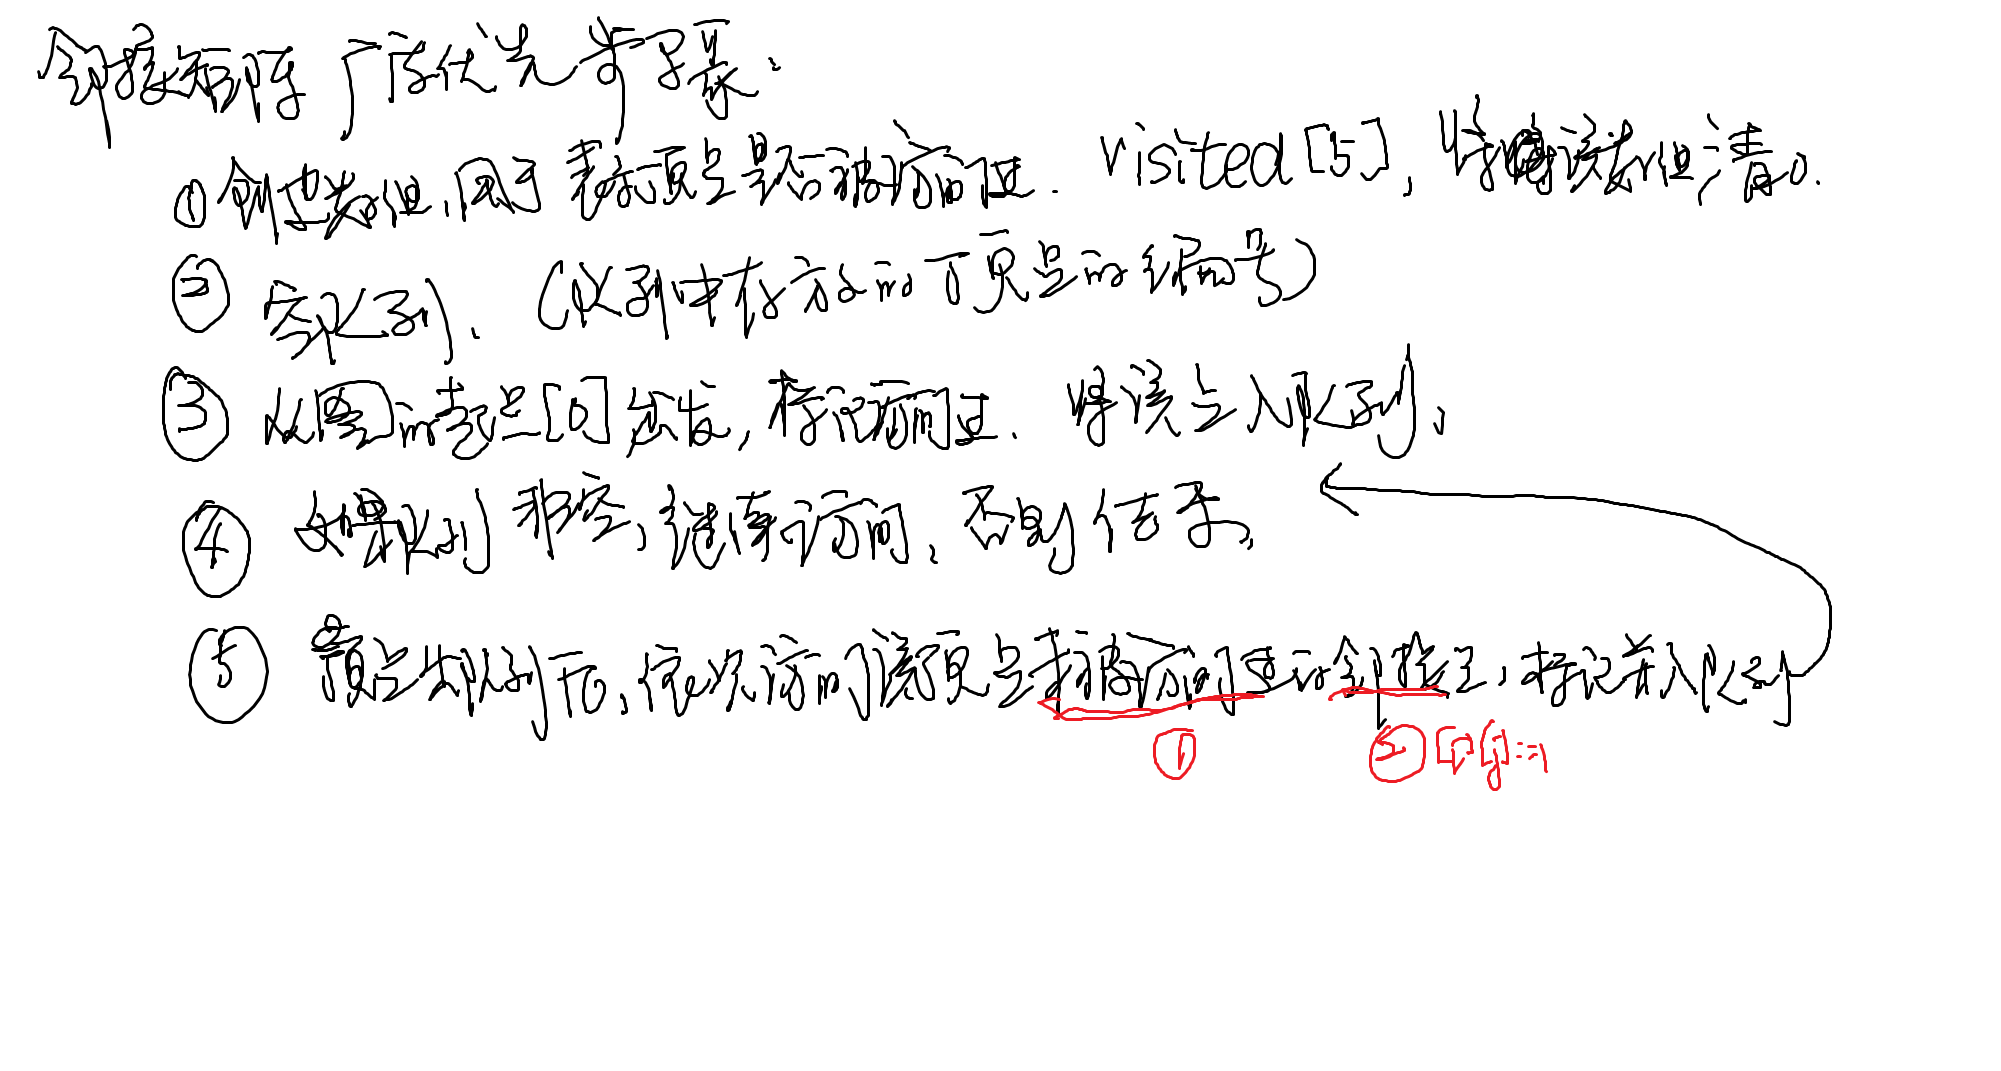 邻接矩阵 广度优先 步骤:
① 创建数组,用于表示顶点是否被访问过. visited[5], 将该数组清0.
② 空队列. (队列中存放的顶点的编号)
③ 从图的起点[0]出发, 标记访问过. 将该点入队列,
④ 如果队列非空,继续访问,否则结束,
⑤ 顶点出队列后,依次访问该顶点未被访问过的邻接点,标记并入队列
① ② [i][j]==1